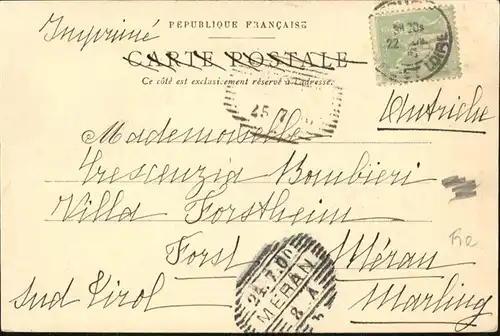 RÉPUBLIQUE FRANÇAISE
Imprimé
CARTE POSTALE
Ce côté est exclusivement réservé à l'adresse.
Autriche
Mademoiselle
Crescenzia Bombieri
Villa Forstheim
Forst Méran
Sud Tirol Marling
24.7.00
MERAN
8. A
25 7
22
LOIRE
Fra